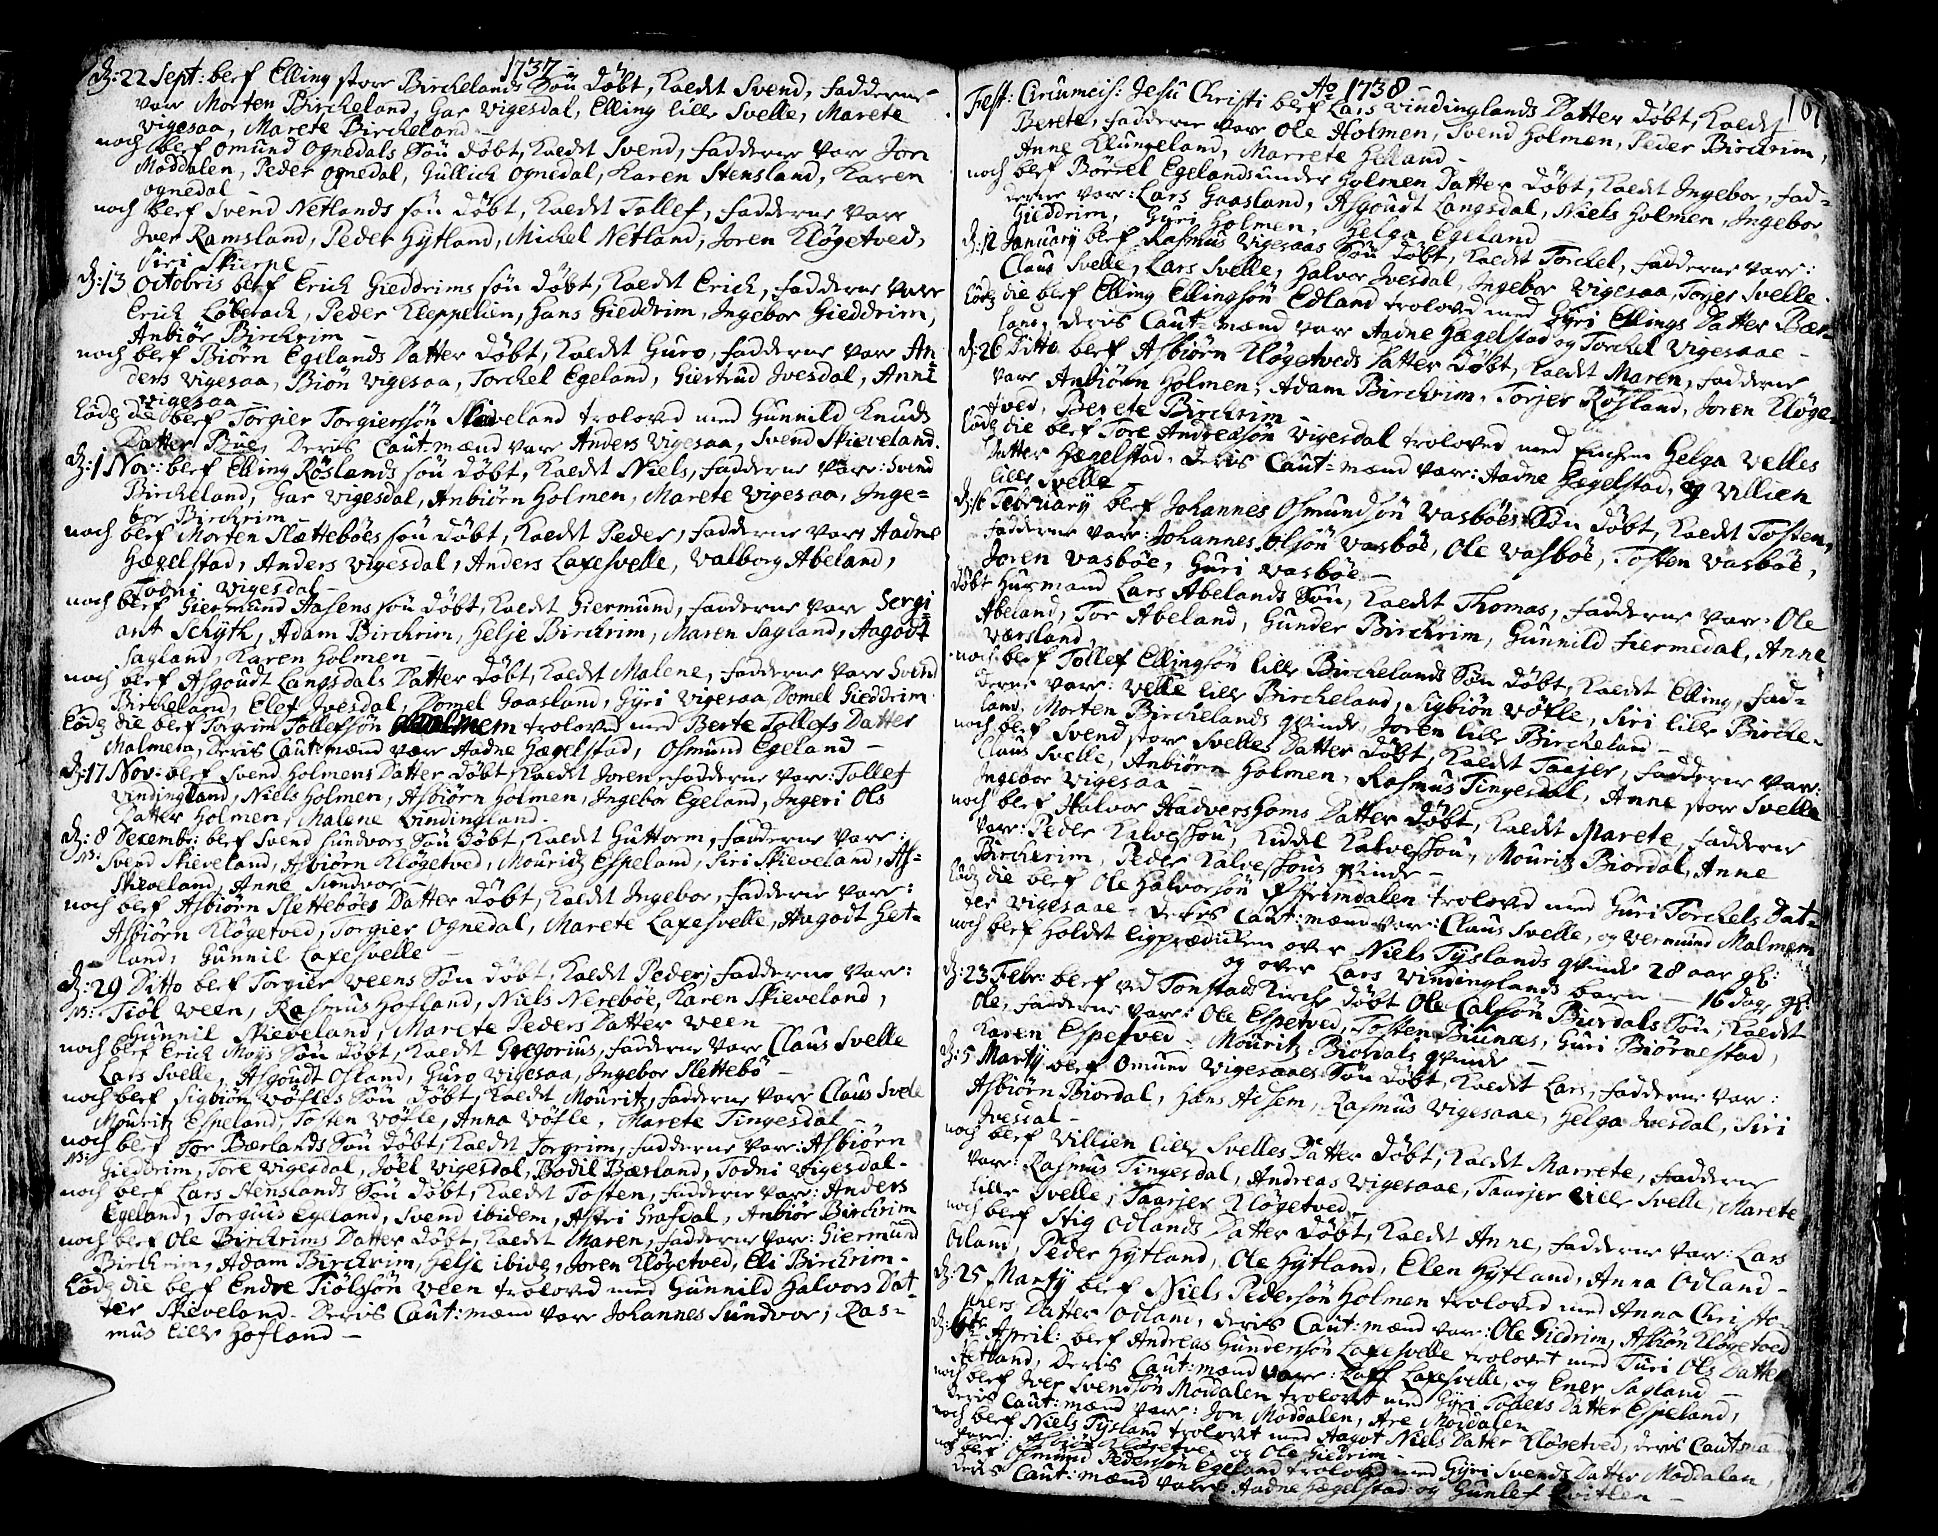 1737
d: 22 Sept: blef Elling store Birchelands Søn døbt, kaldt Svend, Fadderne
vare Morten Bircheland, Gar Vigesdal, Elling lille Svelle, Marete
Vigesaa, Marete Bircheland –
noch blef Omund Ognedals Søn døbt, kaldt Svend, Fadderne vare Jon
Moddalen, Peder Ognedal, Gullich Ognedal, Karen Stensland, Karen
Ognedal –
noch blef Svend Netlands søn døbt, kaldt Tollef, Fadderne vare
Iver Ramsland, Peder Hytland, Michel Netland, Joren Kløgetved,
Siri Skierpe –
d: 13 Octobris blef Erich Gieddrims søn døbt, kaldt Erich, Fadderne vare
Erich Løbebach, Peder Kleppelien, Hans Gieddrim, Ingebor Gieddrim,
Anbiør Birchrim –
noch blef Biørn Egelands Datter døbt, kaldt Guro, Fadderne vare An
ders Vigesaa, Biøn Vigesaa, Torchel Egeland, Giertrud Ivesdal, Anne
Vigesaa –
Eodē die blef Torgier Torgiersøn Skieveland trolovd med Gunnild Knuds
Datter Bue, Deris Caut: mænd vare Anders Vigesaa, Svend Skieveland.
d: 1 Nov: blef Elling Røslands søn døbt, kaldt Niels, Fadderne vare: Svend
Bircheland, Gar Vigesdal, Anbiørn Holmen, Marete Vigesaa, Inge=
bor Birchrim –
noch blef Morten Slættebøes søn døbt, kaldt Peder, Fadderne vare Aadne
Hægelstad, Anders Vigesdal, Anders Laxesvelle, Valborg Abeland,
Todni Vigesdal –
noch blef Giermund Aasens søn døbt, kaldt Giermund, Fadderne vare Sergi
ant Schyth, Adam Birchrim, Helje Birchrim, Maren Sagland, Aagodt
Sagland, Karen Holmen –
noch blef Asgoudt Langsdals Datter døbt, kaldt Malene, Fadderne vare Svend
Bircheland, Elef Ivesdal, Domel Gaasland, Gyri Vigesaa, Domel Gieddrim.
Eodē die blef Torgrim Tollefsøn Malmem trolovd med Berte Tollefs Datter
Malmeia, Deris Caut: mænd vare Aadne Hægelstad, Osmund Egeland –
d: 17 Nov: blef Svend Holmens Datter døbt, kaldt Joren, Fadderne vare: Tollef
Vindingland, Niels Holmen, Asbiørn Holmen, Ingebor Egeland, Ingeri Ols
Datter Holmen, Malene Vindingland.
d: 8 Decembr: blef Svend Sundvors Søn døbt, kaldt Guttorm, Fadderne vare:
NB: Svend Skieveland, Asbiørn Kløgetved, Mouritz Espeland, Siri Skieveland, As=
Skieveland, Anne Sundvor –
noch blef Asbiørn Sletteboes Datter døbt, kaldt Ingebor, Fadderne vare:
Asbiørn Kløgetved, Torgier Ognedal, Marete Laxesvelle, Aagodt Het=
land, Gunnil Laxesvelle –
d: 29 Ditto blef Torgier Veens Søn døbt, kaldt Peder, Fadderne vare:
NB: Tiøl Veen, Rasmus Hofland, Niels Nerebøe, Karen Skieveland,
Gunnil Skieveland, Marete Peders Datter Veen
noch blef Erich Moys Søn døbt, kaldt Gregorius, Fadderne vare Claus Svelle
Lars Svelle, Asgoudt Osland, Guro Vigesaa, Ingebor Slettebø –
noch blef Sigbiøn Vøfles Søn døbt, kaldt Mouritz, Fadderne vare Claus Svele
Mouritz Espeland, Tosten Vøfle, Anna Vøfle, Marete Tingesdal –
noch blef Tor Bærlands Søn døbt, kaldt Torgrim, Fadderne vare: Asbiørn
NB: Giedrim, Tore Vigesdal, Joel Vigesdal, Bodil Bærland, Todni Vigesdal.
noch blef Lars Stenslands Søn døbt, kaldt Tosten, Fadderne vare: Anders
Egeland, Torgiuus Egeland, Svend ibidem, Astri Grafdal, Anbiør Birchrim
noch blef Ole Birchrims Datter døbt, kaldt Maren, Fadderne vare: Giermund
Birchrim, Adam Birchrim, Helje ibidē, Joren Kløgetved, Eli Birchrim.
Eodē die blef Endre Tiølsøn Veen trolovd med Gunnild Halvors Dat
ter Skieveland. Deris Caut: mænd vare Johannes Sundvor, Ras=
mus lille Hofland –
Ao 1738
Fest: Circumcis: Jesu Christi blef Lars Vindinglands Datter døbt, kaldt
Berete, Fadderne vare Ole Holmen, Svend Holmen, Peder Birchrim,
Anne Klungeland, Marrete Helland –
noch blef Børsel Egelands under Holmen Datter døbt, kaldt Ingebor, Fad=
derne vare: Lars Gaasland, Asgoudt Langsdal, Niels Holmen, Ingebor
Gieddrim, Gyri Holmen, Helga Egeland
d: 12 January blef Rasmus Vigesaas Søn døbt, kaldt Torchel, Fadderne vare:
Claus Svelle, Lars Svelle, Halvor Ivesdal, Ingebor Vigesaa, Torjer Svelle.
Eodē die blef Elling Ellingsøn Edland trolovd med Gyri Ellings Datter Bær=
land, Deris Caut: mænd vare Aadne Hægelstad og Torchel Vigesaae –
d: 26 Ditto blef Asbiørn Kløgetveds Datter døbt, kaldt Maren, Fadderne
vare Anbiørn Holmen, Adam Birchrim, Torjer Røsland, Joren Kløge=
tved, Berete Birchrim –
Eodē die blef Tore Andreasøn Vigesdal trolovet med Enchen Helga Velles
Datter Hægelstad. Deris Caut: mænd vare: Aadne Hægelstad, og Villien
lille Svelle
d: 16 February blef Johannes Osmundsøn Vasbøes Søn døbt, kaldt Tosten,
Fadderne vare: Johannes Olsøn Vasbøe, Ole Vasbøe, Tosten Vasbøe,
Joren Vasbøe, Guri Vasbøe –
døbt Husmand Lars Abelands Søn, kaldt Thomas, Fadderne vare: Ole
Abeland, Tor Abeland, Gunder Birchrim, Gunnild Fiermedal, Anne
Værsland
noch blef Tollef Ellingsøn lille Birchelands Søn døbt, kaldt Elling, Fad=
derne vare: Velle lille Bircheland, Sigbiørn Vøfle, Siri lille Birche=
land, Morten Birchelands qvinde, Joren lille Bircheland –
noch blef Svend store Svelles Datter døbt, kaldt Taajer, Fadderne vare:
Claus Svelle, Anbiørn Holmen, Rasmus Tingesdal, Anne store Svelle
Ingebor Vigesaa –
noch blef Halvor Hadvershoms Datter døbt, kaldt Marete, Fadderne
vare: Peder Kalveshou, Kiddel Kalveshou, Mouritz Biordal, Anne
Birchrim, Peder Kalveshous qvinde –
Eodē die blef Ole Halvorsøn Ørsdalen trolovd med Guri Torchels Dat=
ter Vigesaae. Deris Caut: mænd vare: Claus Svelle, og Vermund Malmem
noch blef holdt ligprædicken over Niels Tyslands qvinde 28 aar gl:
og over Lars Vindinglands barn – 16 dag: gl:
d: 23 Febr: blef ved Tonstads Kirche døbt Ole Calssøn Biordals Søn, kaldt
Ole, Fadderne vare: Ole Espetved, Tosten Biunæs, Guri Biørnestad,
Karen Espetved – Mouritz Biordals qvinde –
d: 5 Marty blef Omund Vigesaaes Søn døbt, kaldt Lars, Fadderne vare:
Asbiørn Biordal, Hans Adsem, Rasmus Vigesaae, Helga Ivesdal, Siri
Ivesdal –
noch blef Villien lille Svelles Datter døbt, kaldt Marrete, Fadderne
vare: Rasmus Tingesdal, Andreas Vigesaae, Taarjer lille Svelle, Marete
lille Svelle, Taarjer Kløgetved –
noch blef Stig Odlands Datter døbt, kaldt Anne, Fadderne vare: Lars
Odland, Peder Hytland, Ole Hytland, Elen Hytland, Anna Odland –
d: 25 Marty blef Niels Pedersøn Holmen trolovd med Anna Christo
phers Datter Odland, deris Caut: mænd vare: Ole Giedrim, Asbiøn Kløgetved
April: blef Andreas Gundersøn Laxesvelle trolovet med Turi Ols Datter
Hetland, Deris Caut: mænd vare: Laxesvelle, og Ener Sagland –
noch blef Iver Svendsøn Moddalen trolovet med Gyri Tollefs Datter Espeland,
Deris Caut: mænd vare: Jon Moddalen, Are Moddalen
noch blef Niels Tysland trolovet med Aagot Niels Datter Kløgetved, deris Caut: mænd
vare: Asbiøn Kløgetved og Ole Giedrim –
noch blef Osmund Pedersøn Egeland trolovd med Gyri Svends Datter Moddalen,
deris Caut: mænd vare Aadne Hægelstad og Gunlef Qvitlen –